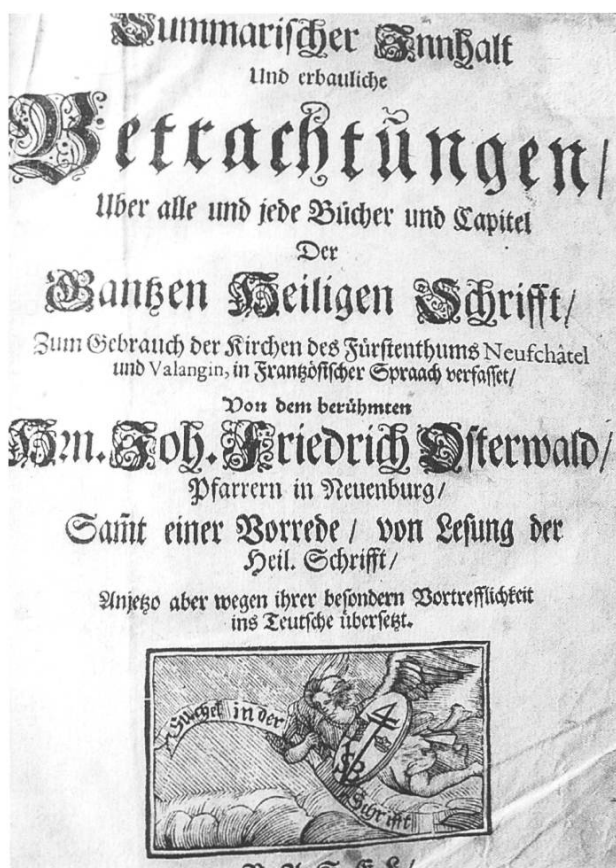 Summarischer Innhalt
Und erbauliche
Betrachtũngen/
Uber alle und jede Bücher und Capitel
Der
Gantzen Heiligen Schrifft/
Zum Gebrauch der Kirchen des Fürstenthums Neufchâtel
und Valangin, in Frantzösischer Spraach verfasset/
Von dem berühmten
Hrn. Joh. Friedrich Osterwald/
Pfarrern in Neuenburg/
Sam̃t einer Vorrede / von Lesung der
Heil. Schrifft/
Anjetzo aber wegen ihrer besondern Vortrefflichkeit
ins Teutsche übersetzt.
Suchet in der
Schrifft